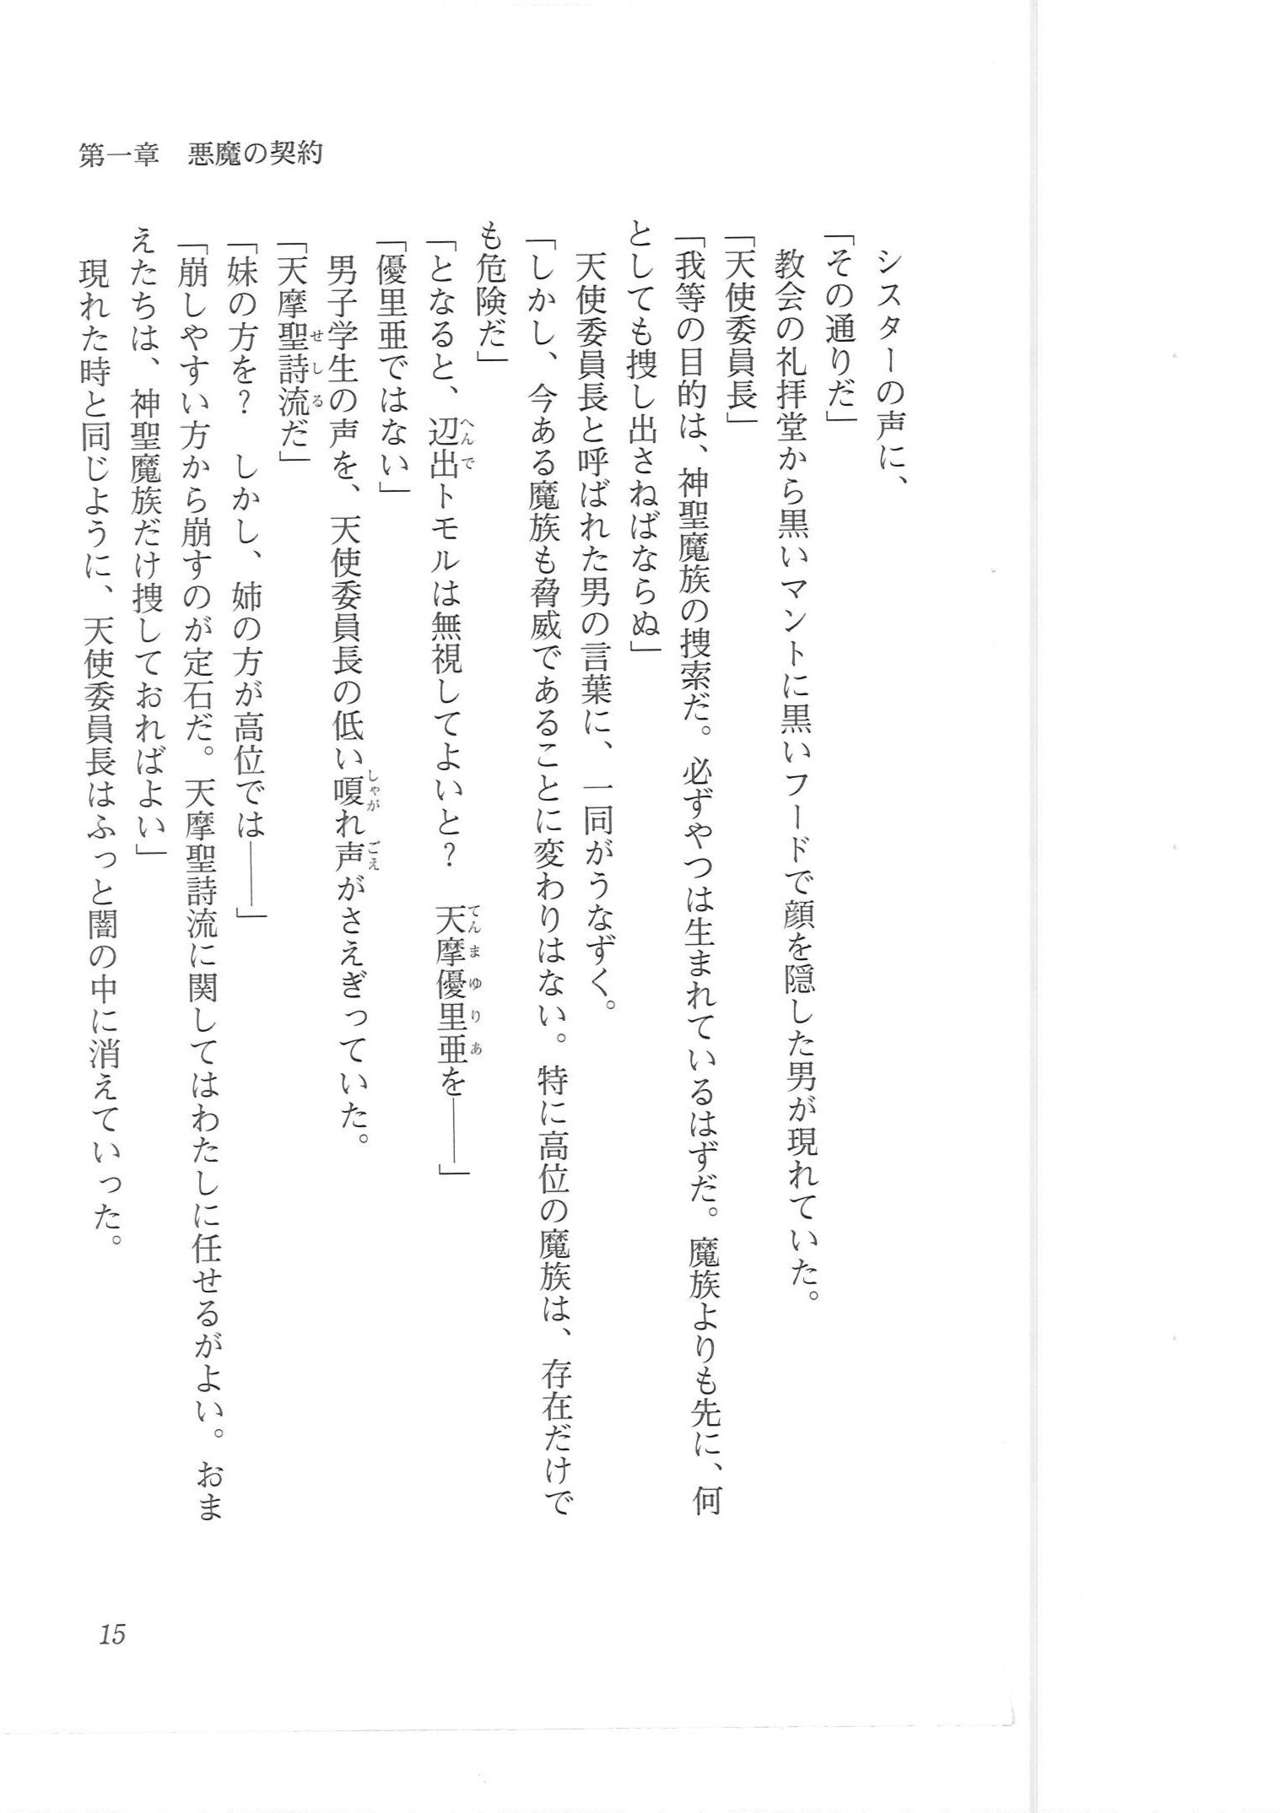 第一章　悪魔の契約
シスターの声に、
「その通りだ」
教会の礼拝堂から黒いマントに黒いフードで顔を隠した男が現れていた。
「天使委員長」
「我等の目的は、神聖魔族の捜索だ。必ずやつは生まれているはずだ。魔族よりも先に、何
としても捜し出さねばならぬ」
天使委員長と呼ばれた男の言葉に、一同がうなずく。
「しかし、今ある魔族も脅威であることに変わりはない。特に高位の魔族は、存在だけで
も危険だ」
「となると、辺出トモルは無視してよいと？　天摩優里亜を――」
「優里亜ではない」
男子学生の声を、天使委員長の低い嗄れ声がさえぎっていた。
「天摩聖詩流だ」
「妹の方を？　しかし、姉の方が高位では――」
「崩しやすい方から崩すのが定石だ。天摩聖詩流に関してはわたしに任せるがよい。おま
えたちは、神聖魔族だけ捜しておればよい」
現れた時と同じように、天使委員長はふっと闇の中に消えていった。
15